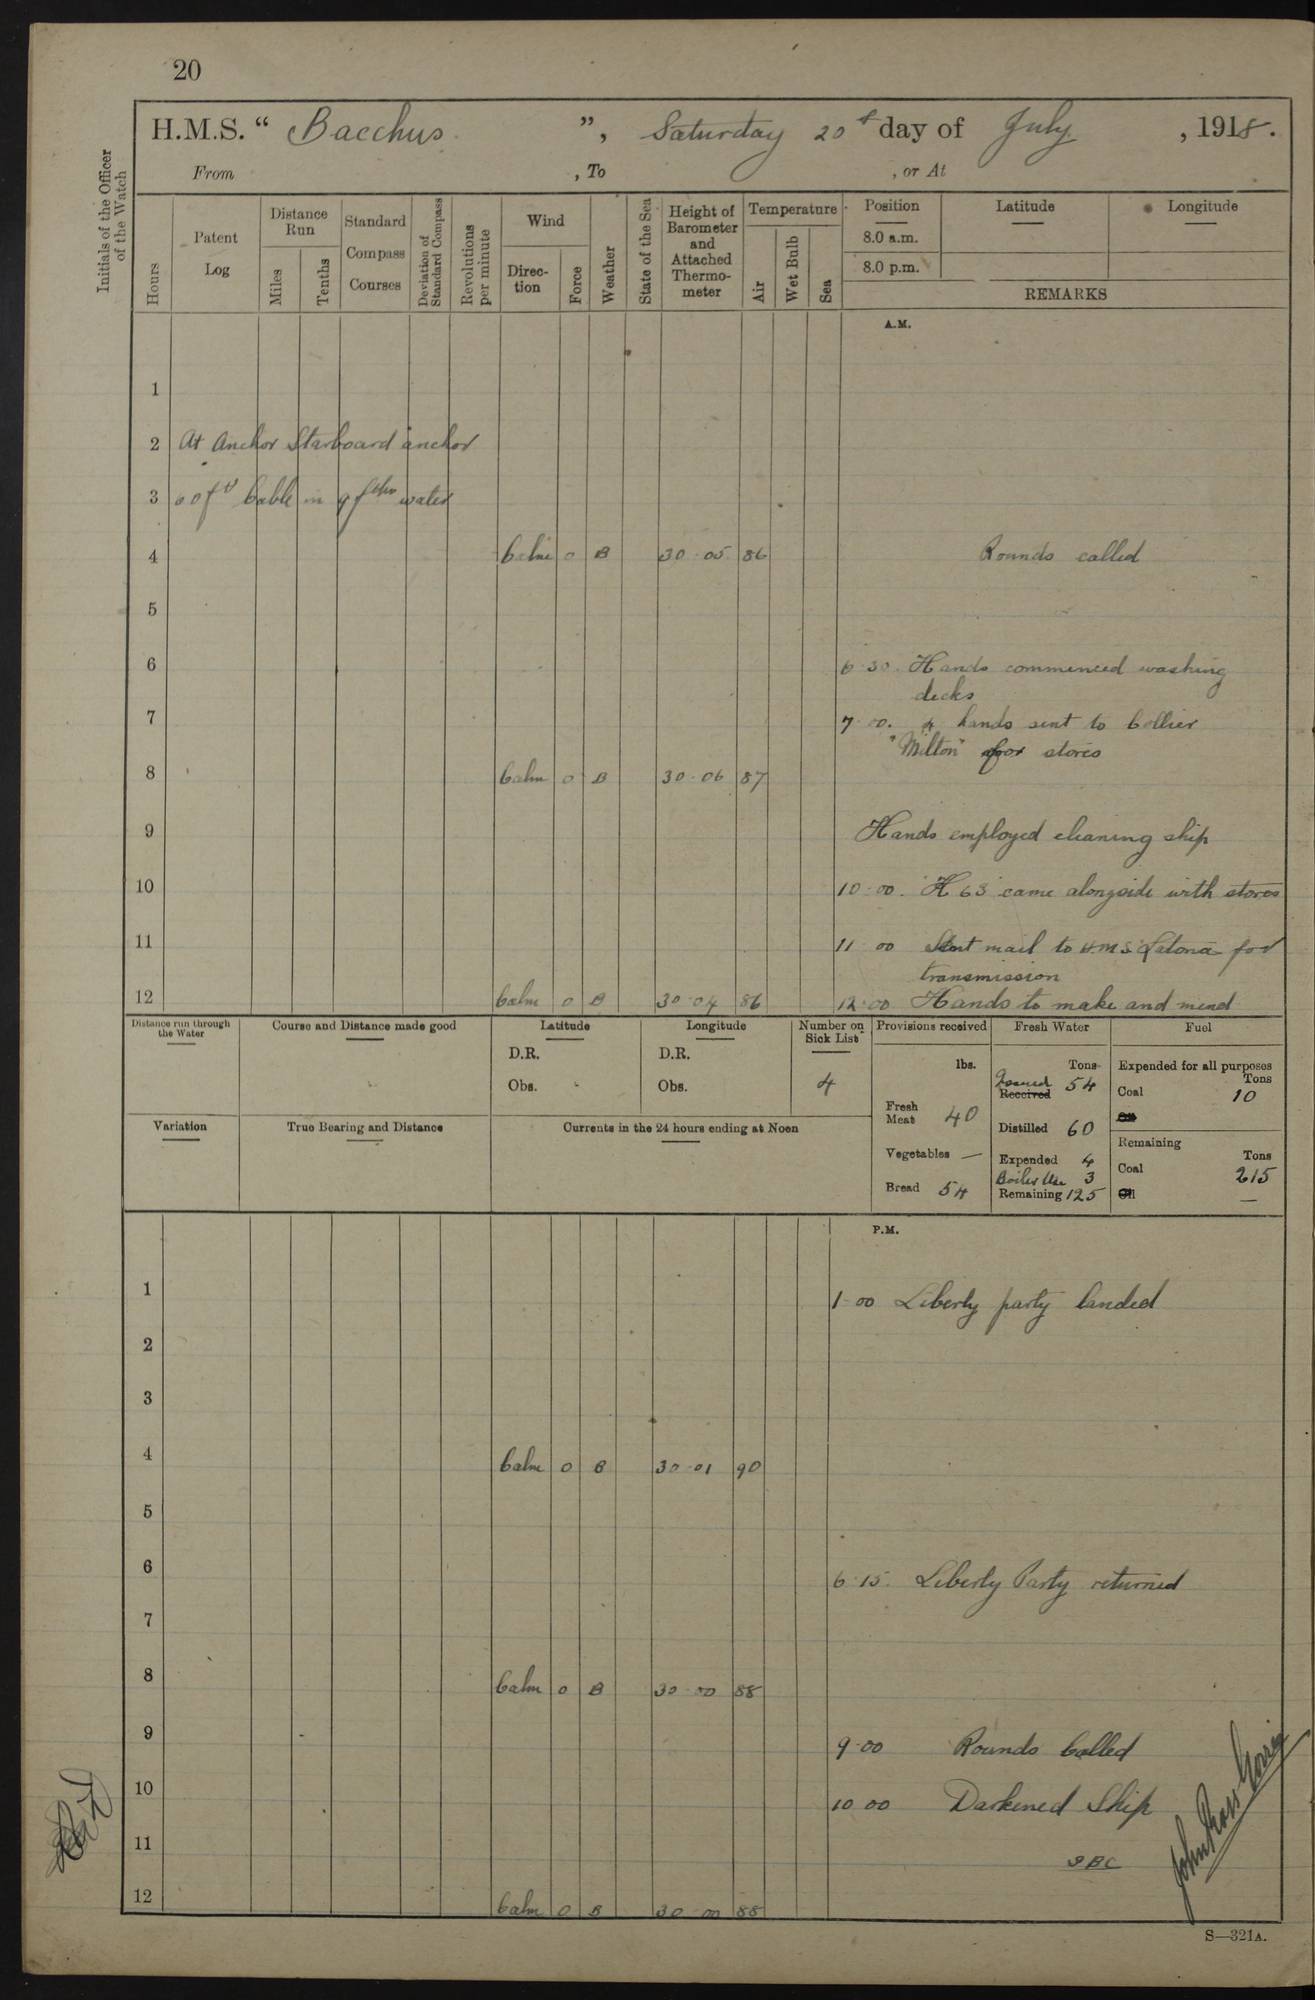 20
H.M.S. “ Bacchus ”, Saturday 20th day of July , 1918.
From , To , or At
Initials of the Officer of the Watch
Hours
Patent Log
Distance Run
Miles
Tenths
Standard Compass Courses
Deviation of Standard Compass
Revolutions per minute
Wind
Direction
Force
Weather
State of the Sea
Height of Barometer and Attached Thermometer
Temperature
Air
Wet Bulb
Sea
Position Latitude Longitude
8.0 a.m.
8.0 p.m.
REMARKS
A.M.
1
2 At Anchor Starboard anchor
3 60 fths Cable in 9 fthm water
4 Calm 0 B 30·05 86 Rounds called
5
6 6·30. Hands commenced washing
decks
7 7·00. 4 hands sent to Collier
"Milton" for stores
8 Calm 0 B 30·06 87
9 Hands employed cleaning ship
10 10·00. "H 63" came alongside with stores
11 11 00 Sent mail to H.M.S. Latona for
transmission
12 Calm 0 B 30·04 86 12·00 Hands to make and mend
Distance run through the Water
Course and Distance made good
Latitude
D.R.
Obs.
Longitude
D.R.
Obs.
Number on Sick List
4
Variation
True Bearing and Distance
Currents in the 24 hours ending at Noon
Provisions received
lbs.
Fresh Meat 40
Vegetables —
Bread 54
Fresh Water
Tons
Issued 54
Received
Distilled 60
Expended 4
Boiler Use 3
Remaining 125
Fuel
Expended for all purposes
Tons
Coal 10
Oil
Remaining
Tons
Coal 215
Oil —
P.M.
1 1·00 Liberty party landed
2
3
4 Calm 0 B 30·01 90
5
6 6·15. Liberty Party returned
7
8 Calm 0 B 30·00 88
9 9·00 Rounds Called
10 10 00 Darkened Ship
11
12 Calm 0 B 30 00 88
S—321A.